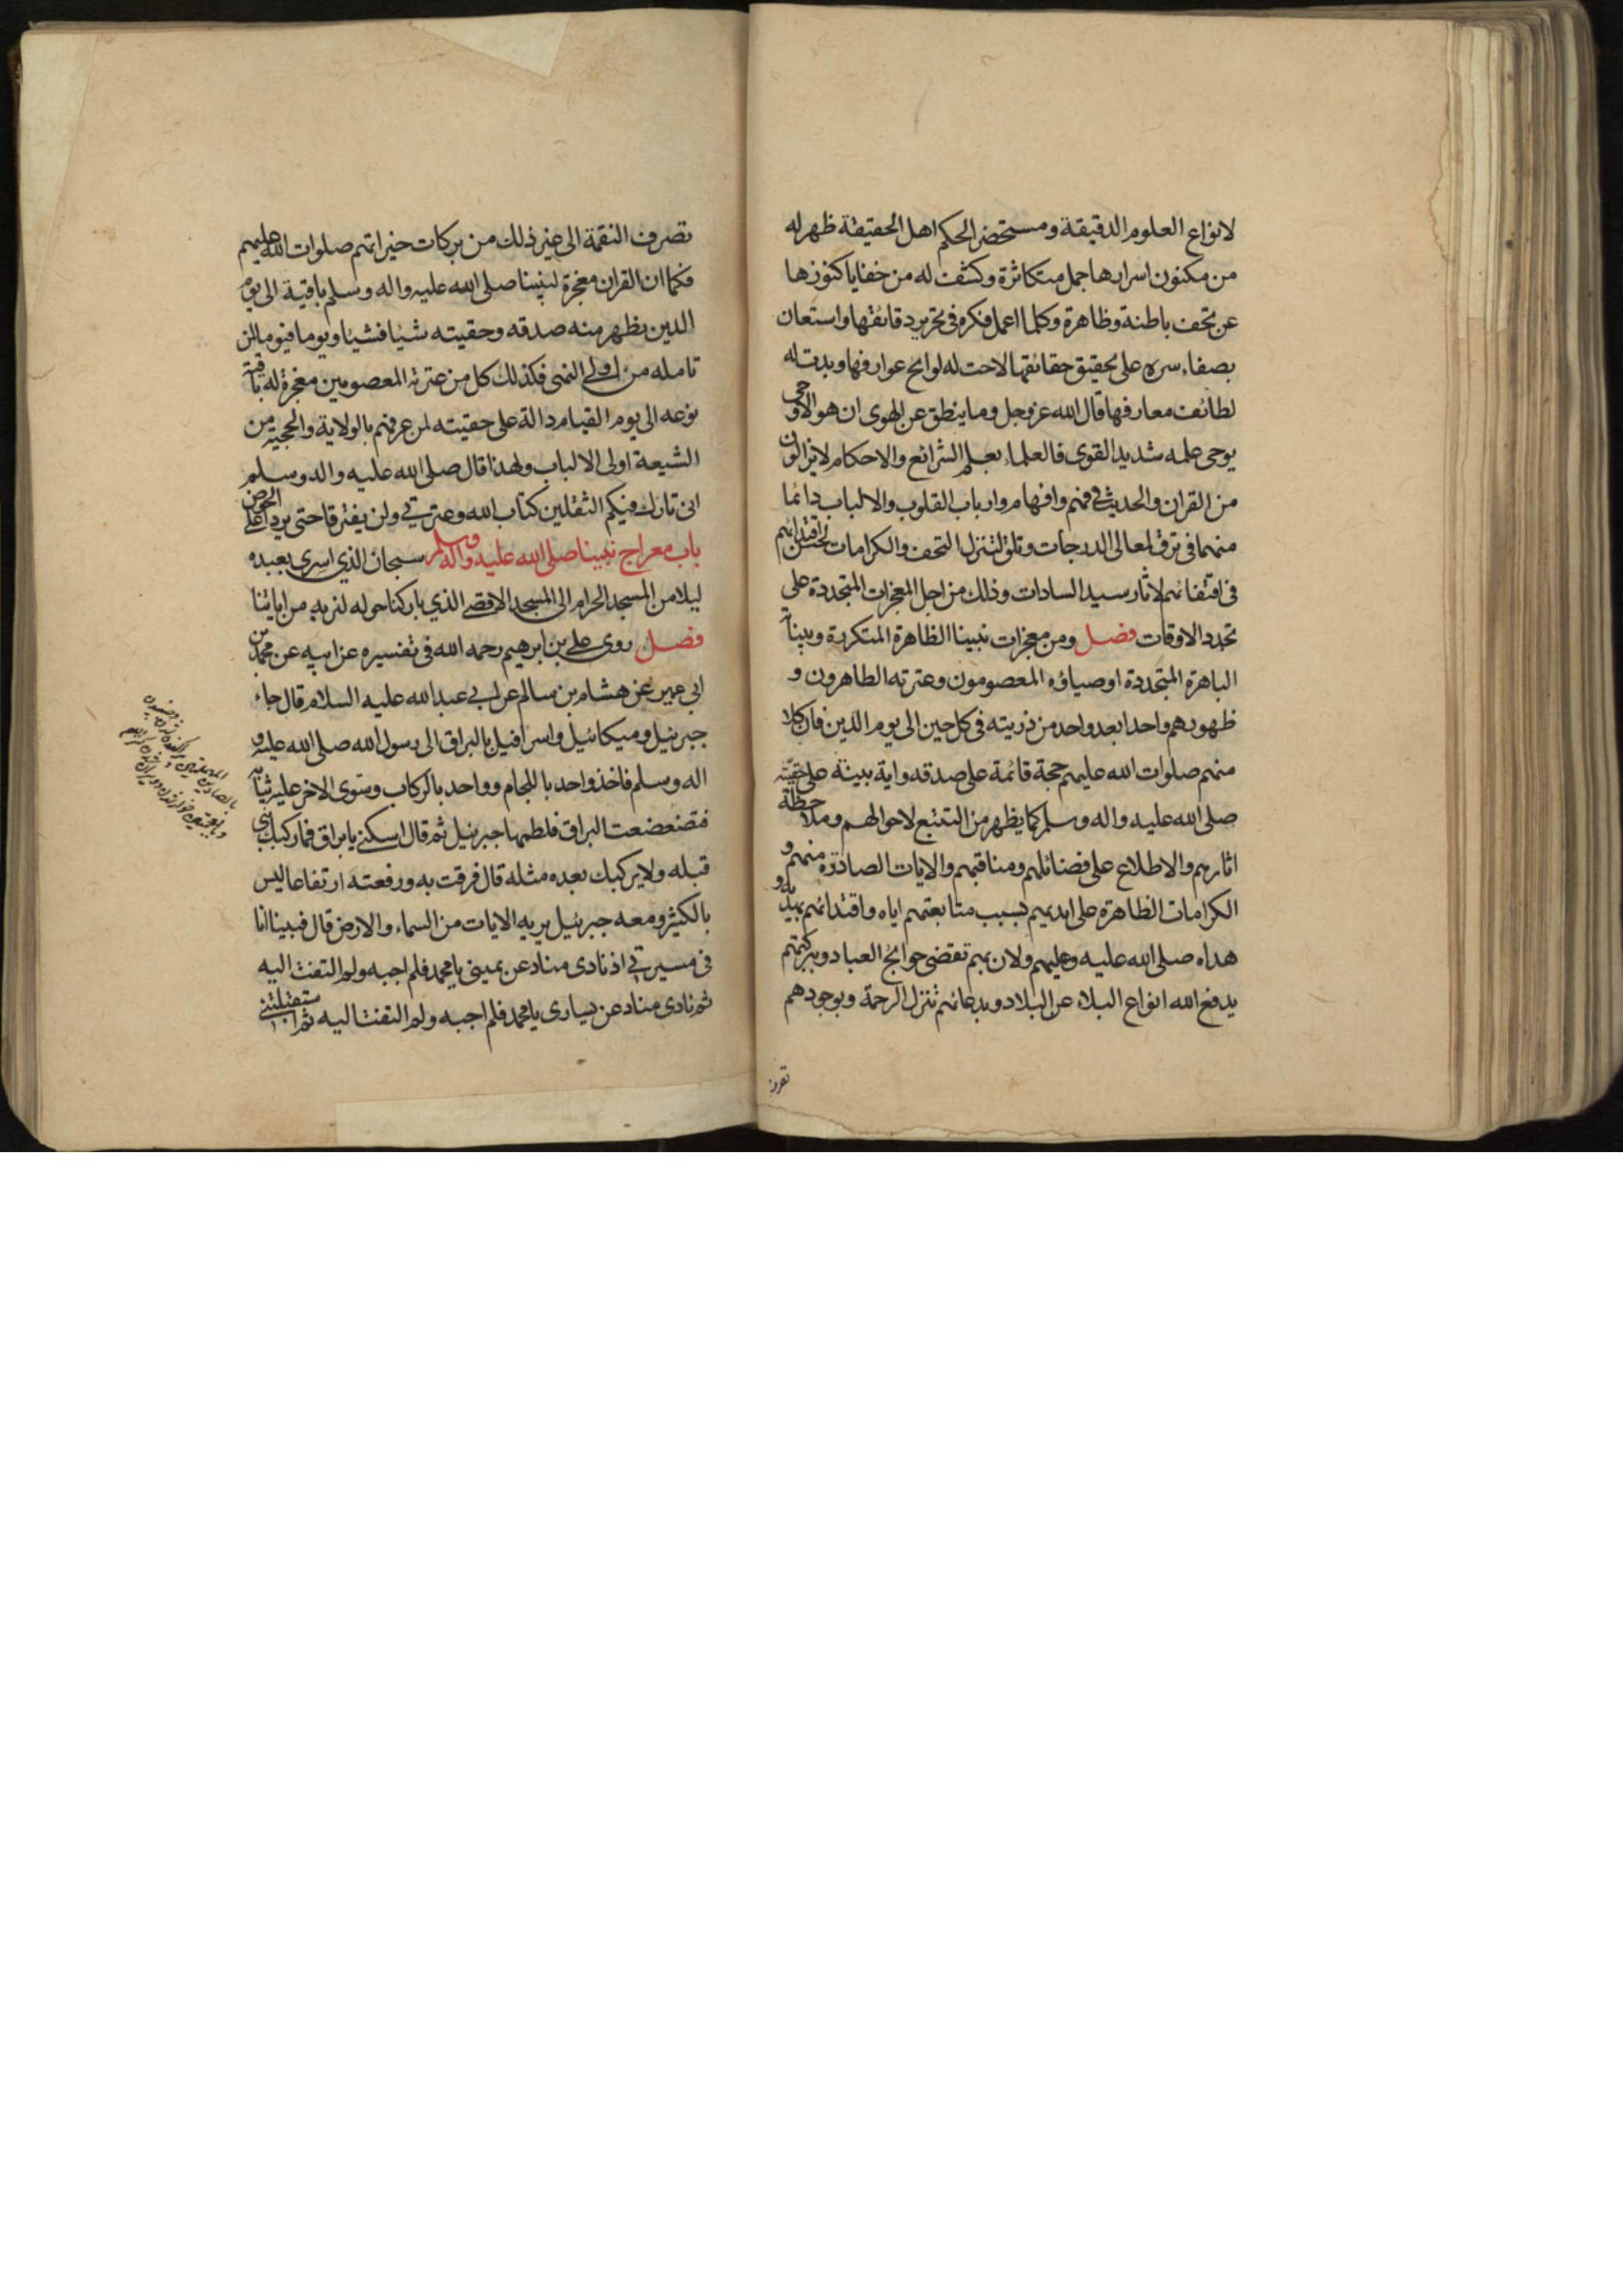 لانواع العلوم الدقيقة ومستحضر الحكم اهل الحقيقة ظهر له
من مكنون اسرارها جمل متكاثرة وكشف له من خفايا كنوزها
عن تحف باطنة وظاهرة وكلما اعمل فكره فى تحرير دقائقها واستعان
بصفاء سره على تحقيق حقائقها لاحت له لوائح عوارفها وبدت له
لطائف معارفها قال الله عز وجل وما ينطق عن الهوى ان هو الا وحى
يوحى علمه شديد القوى فالعلماء بعلم الشرائع والاحكام لايزالون
من القران والحديث فى فهم وافهام وارباب القلوب والالباب دائما
منهما فى ترق لمعالى الدرجات وتلق لتنزل التحف والكرامات لحسن اقتدائهم
فى اقتفائهم لاثار سيد السادات وذلك من اجل المعجزات المتجددة على
تجدد الاوقات فصل ومن معجزات نبينا الظاهرة المتكررة وبيناته
الباهرة المتجددة اوصياؤه المعصومون وعترته الطاهرون و
ظهورهم واحدا بعد واحد من ذريته فى كل حين الى يوم الدين فان كلا
منهم صلوات الله عليهم حجة قائمة على صدقه واية بينة على حقيته
صلى الله عليه واله وسلم كما يظهر من التتبع لاحوالهم وملاحظة
اثارهم والاطلاع على فضائلهم ومناقبهم والايات الصادرة منهم و
الكرامات الظاهرة على ايديهم بسبب متابعتهم اياه واقتدائهم بهداه و
هداه صلى الله عليه وعليهم ولان بهم تقضى حوائج العباد وببركتهم
يدفع الله انواع البلاء عن البلاد وبدعائهم تنزل الرحمة وبوجودهم
تصرف
تصرف النقمة الى غير ذلك من بركات خيراتهم صلوات الله عليهم
فكما ان القران معجزة لنبينا صلى الله عليه واله وسلم باقية الى يوم
الدين يظهر منه صدقه وحقيته شيئا فشيئا ويوما فيوما لمن
تامله من اولى النهى فكذلك كل من عترته المعصومين معجزة له باقية
نوعه الى يوم القيام دالة على حقيته لمن عرفهم بالولاية والحجية من
الشيعة اولى الالباب ولهذا قال صلى الله عليه واله وسلم
انى تارك فيكم الثقلين كتاب الله وعترتى ولن يفترقا حتى يردا على الحوض
باب معراج نبينا صلى الله عليه واله وسلم سبحان الذي اسرى بعبده
ليلا من المسجد الحرام الى المسجد الاقصى الذي باركنا حوله لنريه من اياتنا
فصل روى على بن ابرهيم رحمه الله فى تفسيره عن ابيه عن محمد بن
ابى عمير عن هشام بن سالم عن ابى عبد الله عليه السلام قال جاء
جبرئيل وميكائيل واسرافيل بالبراق الى رسول الله صلى الله عليه و
اله وسلم فاخذ واحد باللجام وواحد بالركاب وسوى الاخر عليه ثيابه
فتضعضعت البراق فلطمها جبرئيل ثم قال اسكنى يا براق فما ركبك نبى
قبله ولا يركبك بعده مثله قال فرقت به ورفعته ارتفاعا ليس
بالكثير ومعه جبرئيل يريه الايات من السماء والارض قال فبينا انا
فى مسيرى اذ نادى مناد عن يمينى يا محمد فلم اجبه ولم التفت اليه
ثم نادى مناد عن يسارى يا محمد فلم اجبه ولم التفت اليه ثم استقبلتنى